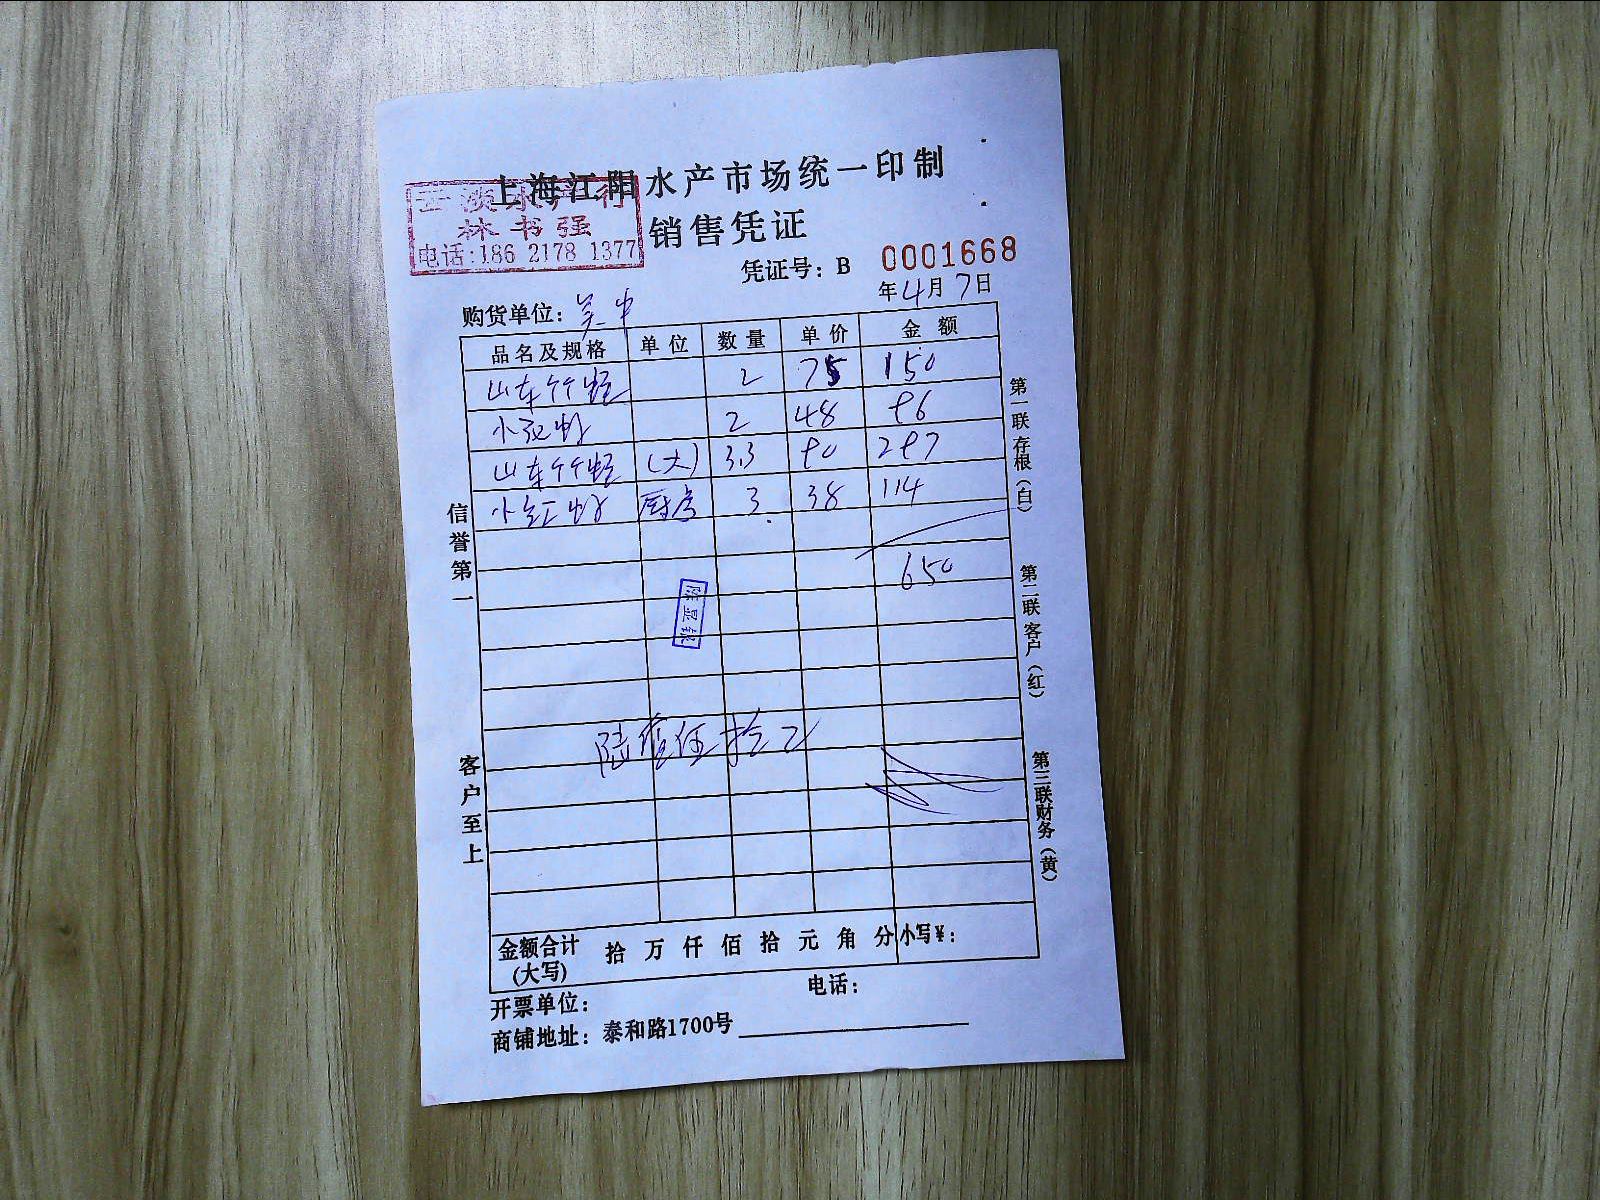 上海江阳水产市场统一印制
销售凭证
林书强
电话:186 2178 1377
凭证号: B 0001668
年4月7日
购货单位: 吴中
品名及规格 单位 数量 单价 金额
山东竹蛏 2 75 150
小花蛤 2 48 96
山东竹蛏 (大) 3.3 90 297
小红蛤 厨房 3 38 114
650
陈亚银
陆佰伍拾元
信誉第一
客户至上
第一联存根(白)
第二联客户(红)
第三联财务(黄)
金额合计(大写) 拾 万 仟 佰 拾 元 角 分 小写¥:
开票单位: 电话:
商铺地址: 泰和路1700号